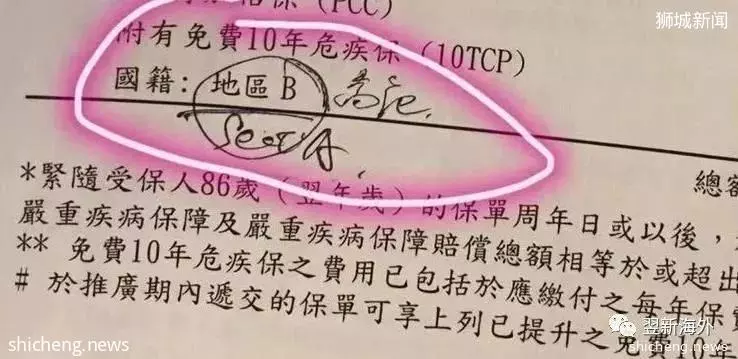 狮城新闻
(PCC)
附有免費10年危疾保 (10TCP)
國籍: 地區 B
總額
*緊隨受保人86歲(翌年歲)的保單周年日或以後,
嚴重疾病保障及嚴重疾病保障賠償總額相等於或超出
** 免費10年危疾保之費用已包括於應繳付之每年保費
# 於推廣期內遞交的保單可享上列已提升之免費10年
翌新海外
shicheng.news
shicheng.news